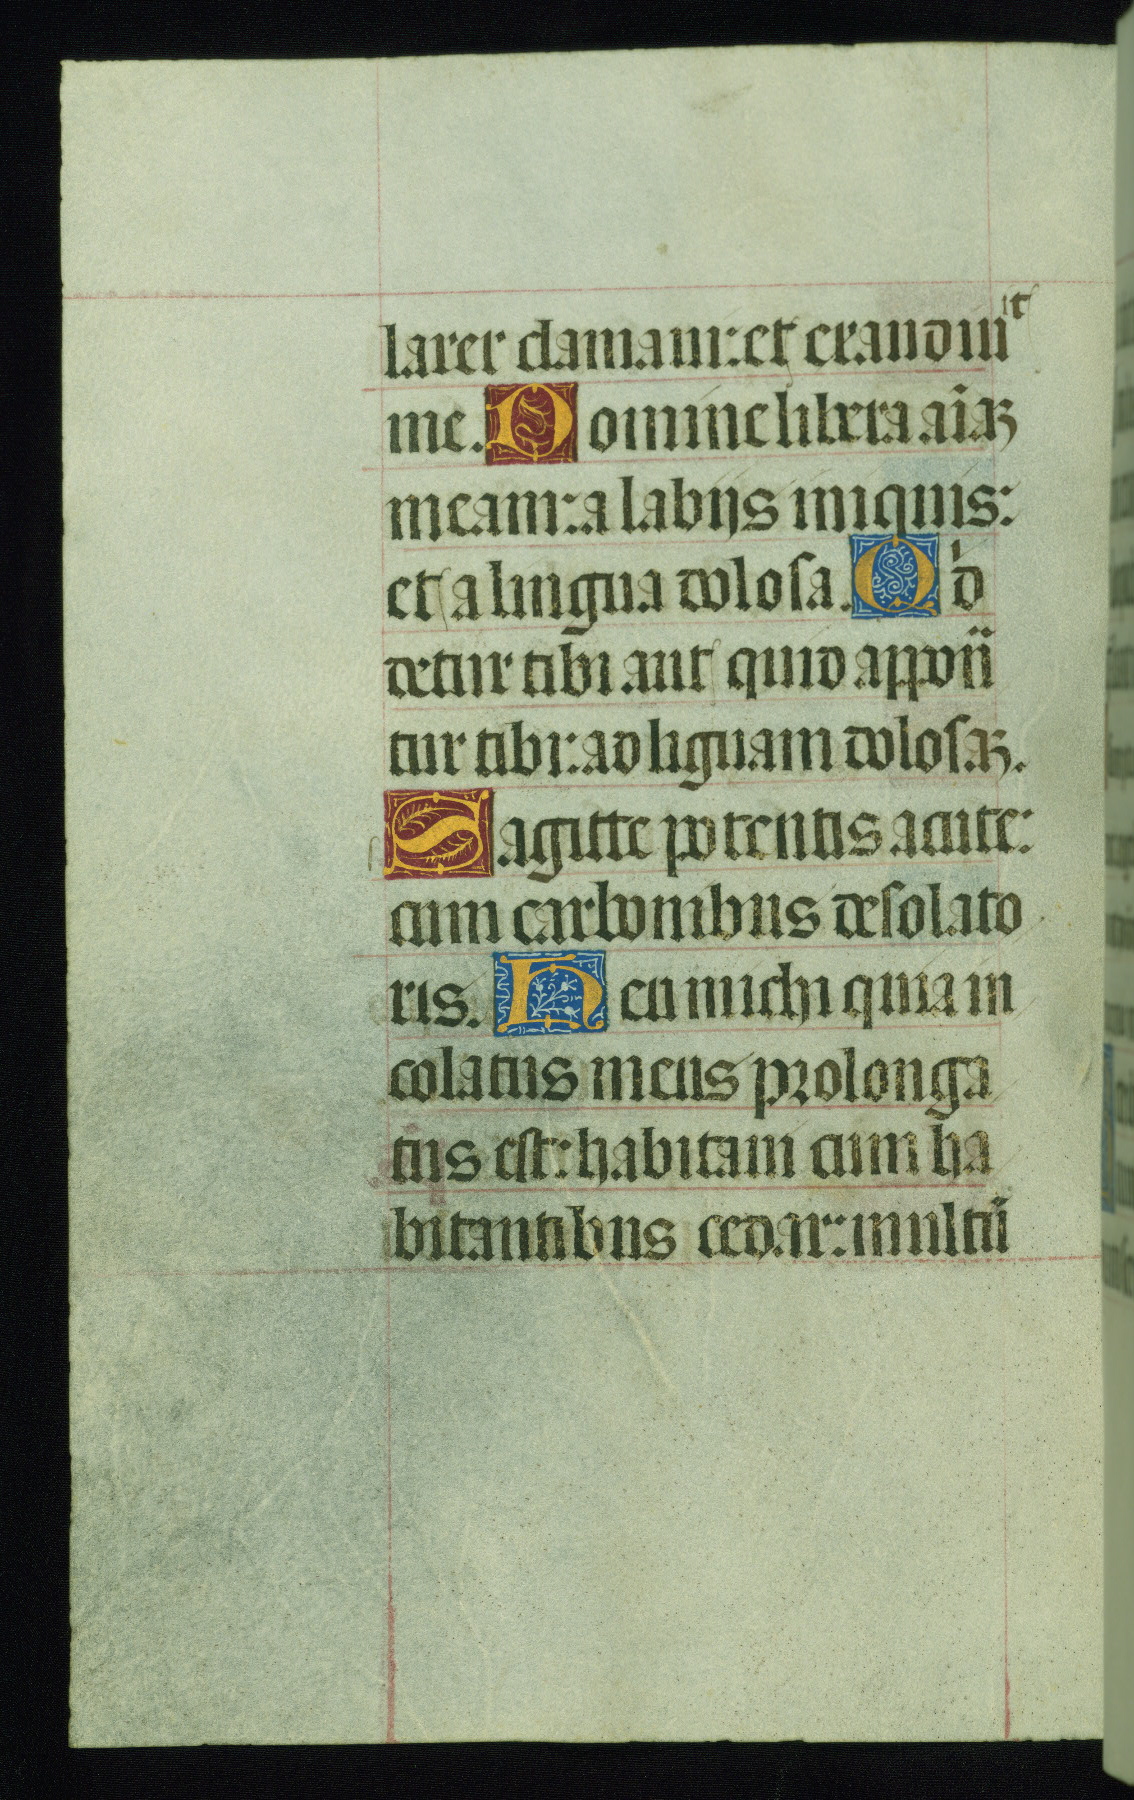 larer clamaui: et exaudiuit
me. Domine libera aīaꝫ
meam: a labijs iniquis:
et a lingua dolosa. Qd̓
detur tibi aut quid appōn̄
tur tibi: ad liguam dolosaꝫ.
Sagitte potentis acute:
cum carbonibus desolato
ris. Heu michi quia in
colatus meus prolonga
tus est: habitaui cum ha
bitantibus cedar: multū